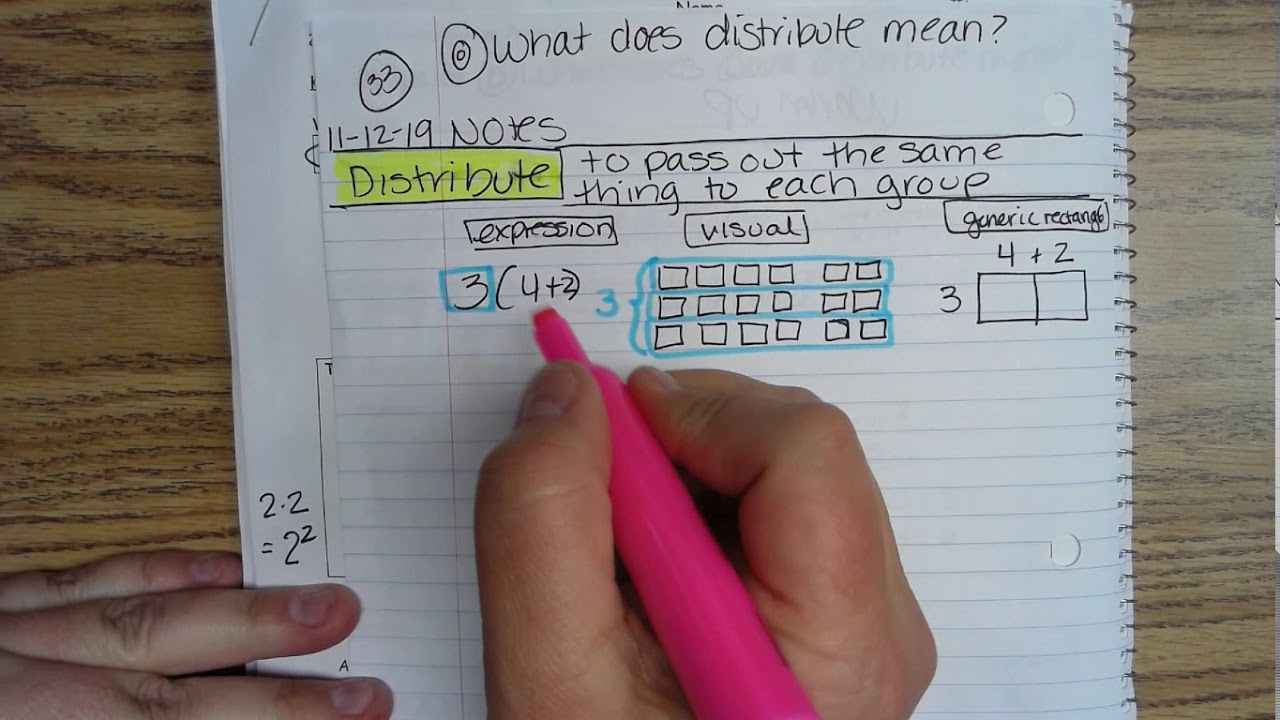 Name
33
What does distribute mean?
11-12-19 Notes
Distribute
to pass out the same
thing to each group
expression
visual
generic rectangle
3(4+2)
3
4 + 2
3
2·2
= 2²
T
A